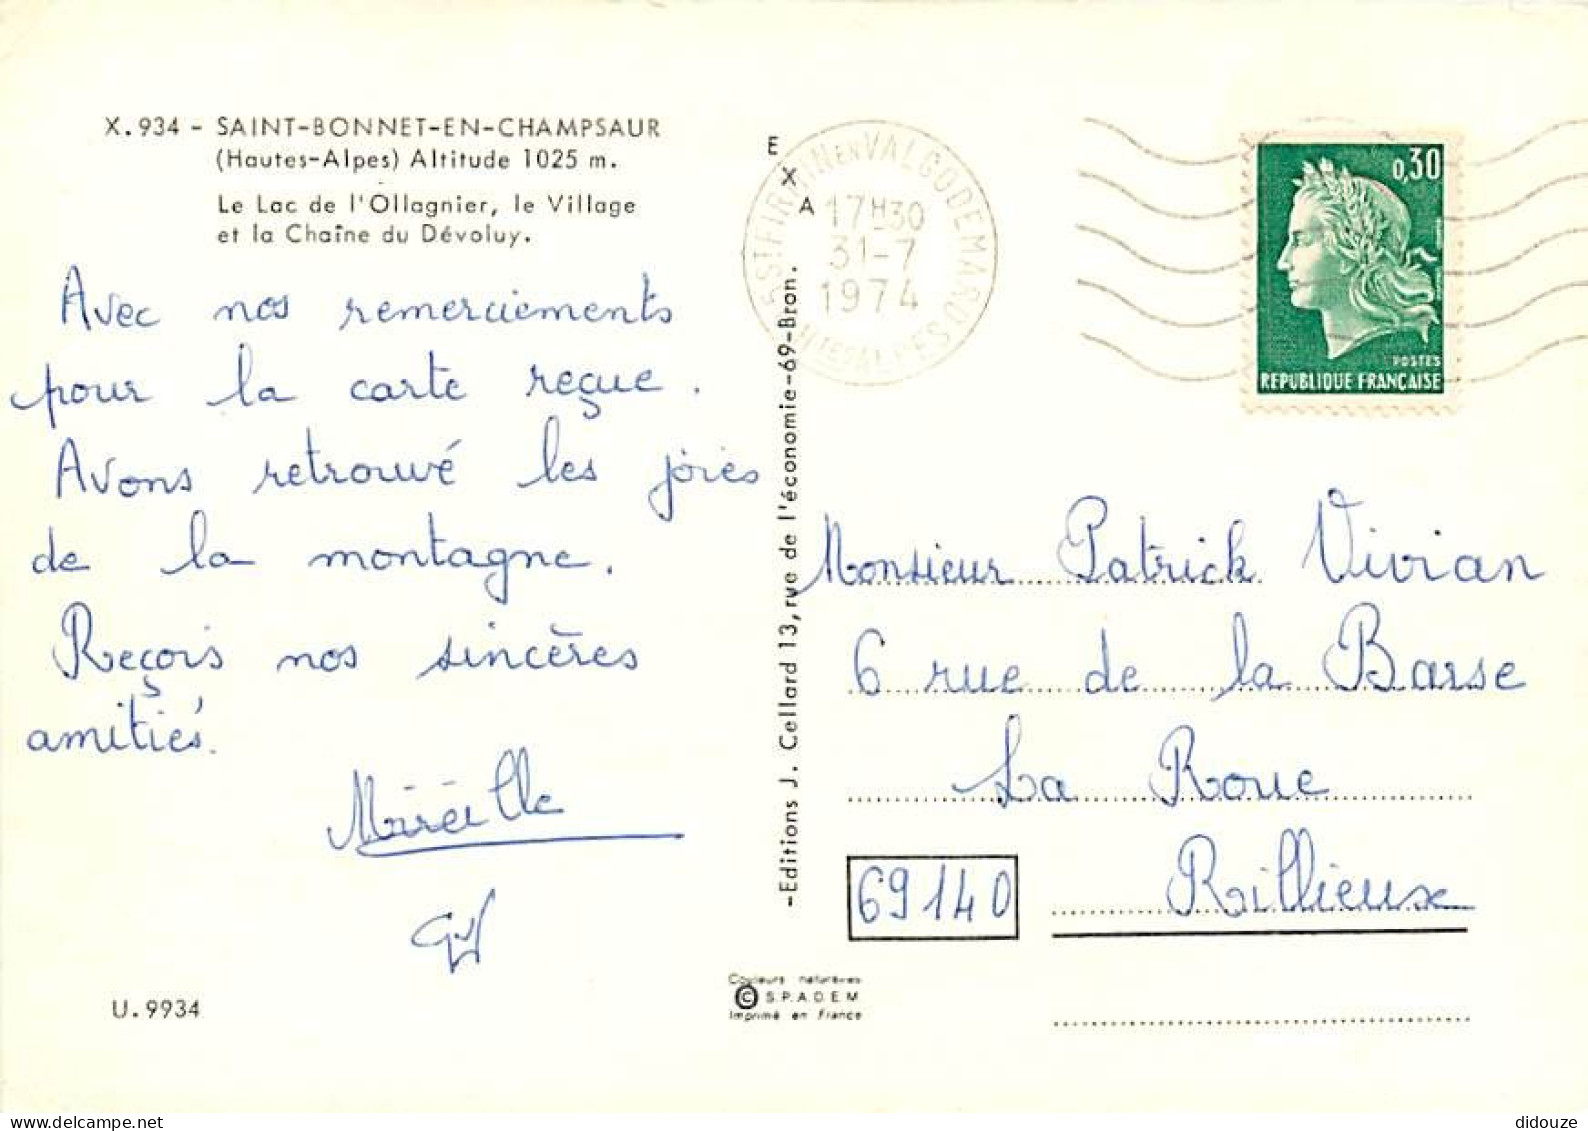 X.934 - SAINT-BONNET-EN-CHAMPSAUR
(Hautes-Alpes) Altitude 1025 m.
Le Lac de l'Ollagnier, le Village
et la Chaîne du Dévoluy.
Avec nos remerciements
pour la carte reçue.
Avons retrouvé les joies
de la montagne.
Reçois nos sincères
amitiés.
Mireille
U.9934
E
X
A
-Editions J. Cellard 13, rue de l'économie-69-Bron.
Couleurs naturelles
© S.P.A.D.E.M
Imprimé en France
ST FIRMIN EN VALGODEMARD
17H30
31-7
1974
HTES ALPES
0,30
POSTES
REPUBLIQUE FRANÇAISE
Monsieur Patrick Vivian
6 rue de la Barse
La Roue
69140 Rillieux
didouze
delcampe.net